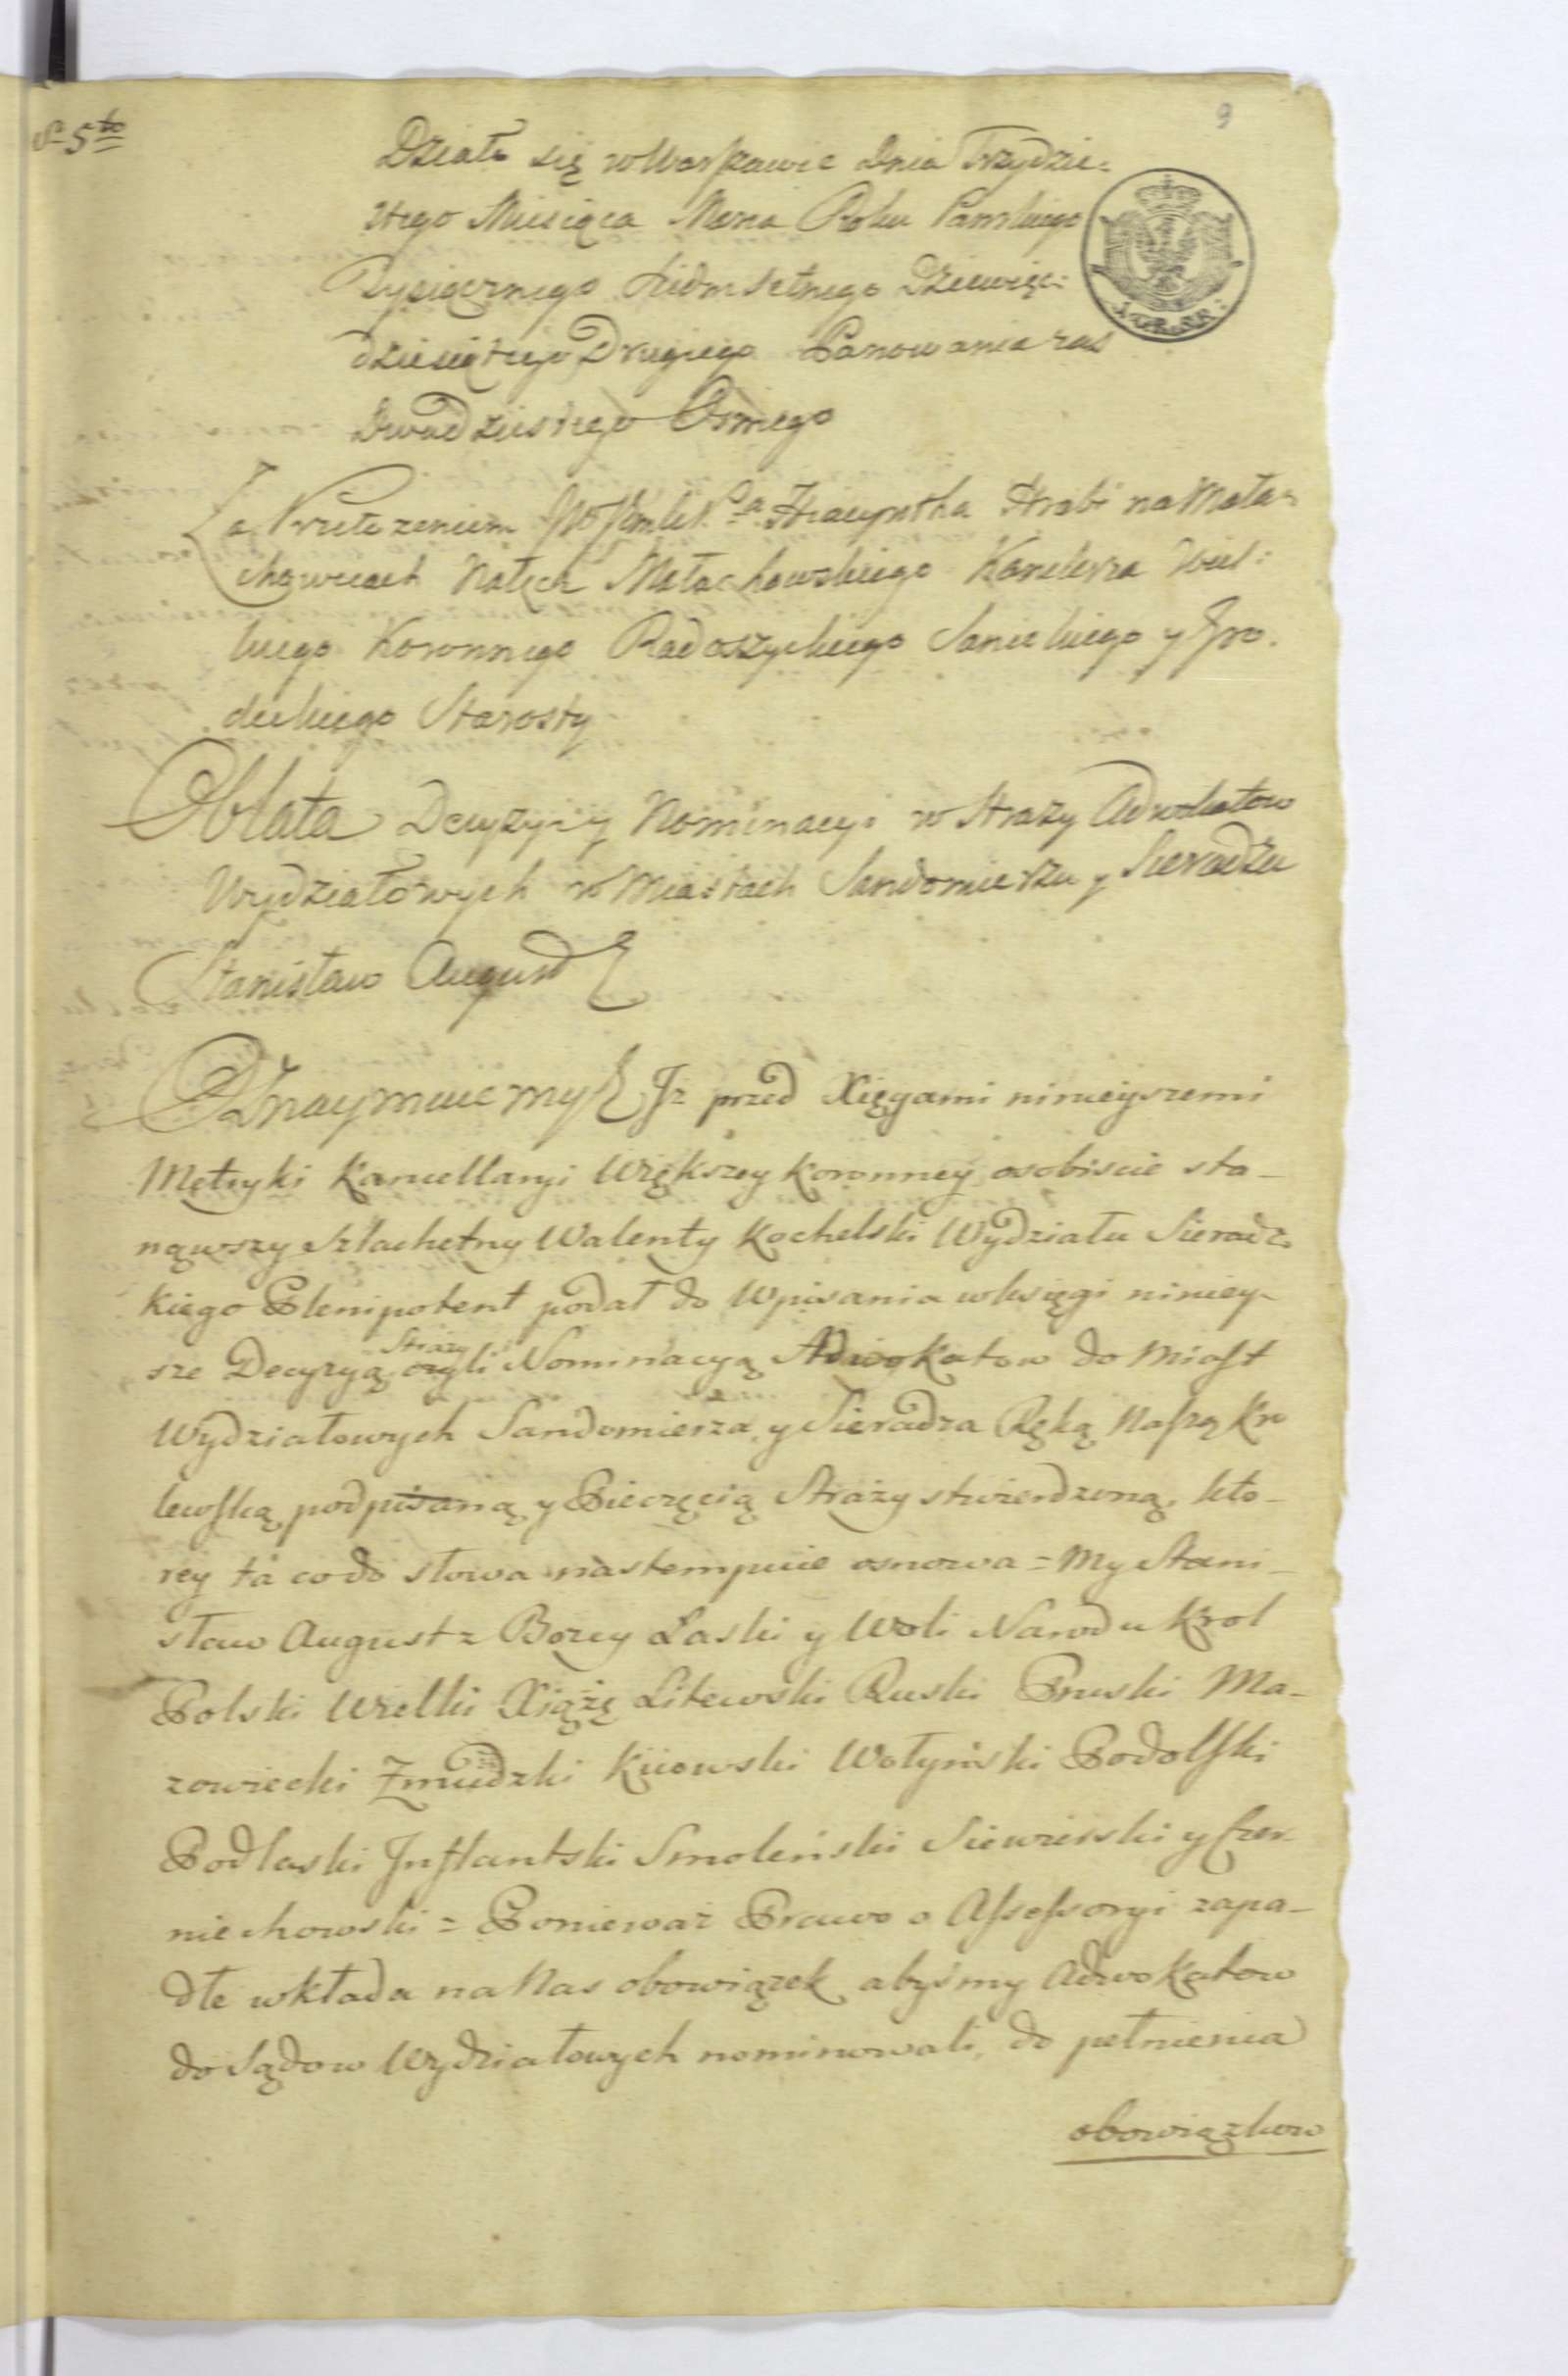 9
S 5to
Działo się w Warszawie Dnia Trzydzie:
stego Miesiąca Maia Roku Pańskiego
Tysiącznego Siedmsetnego Dziewięć:
dziesiątego Drugiego Panowania zas
Dwudziestego Osmego
Za Przełożeniem Hiacyntha Hrabi na Mała:
chowicach Nałęcz Małachowskiego Kanclerza Wiel:
kiego Koronnego Radoszyckiego Sanickiego y Gro.
deckiego Starosty
Oblata Decyzyi y Nominacyi w Straży Adwokatow
Wydziałowych w Miastach Sandomierzu y Sieradzu
Stanisław August
Oznaymuiemy Iż przed Xięgami ninieyszemi
Metryki Kancellaryi Większey Koronney osobiscie sta-
nąwszy Szlachetny Walenty Kochelski Wydziału Sieradz-
kiego Plenipotent podał do Wpisania w księgi niniey-
sze Decyzyą Straży czyli Nominacyą Adwokatow do Miast
Wydziałowych Sandomierza y Sieradza Ręką Naszą Kro
lewską podpisaną y Pieczęcią Straży stwierdzoną, kto-
rey ta co do słowa nastempuie osnowa = My Stani-
sław August z Bozey Łaski y Woli Narodu Krol
Polski Wielki Xiążę Litewski Ruski Pruski Ma-
zowiecki Zmudzki Kiiowski Wołyński Podolski
Podlaski Inflantski Smoleński Siewierski y Czer-
niechowski = Ponieważ Prawo o Assessoryi zapa-
dłe wkłada na Nas obowiązek abyśmy Adwokatow
do Sądow Wydziałowych nominowali, do pełnienia
obowiązkow